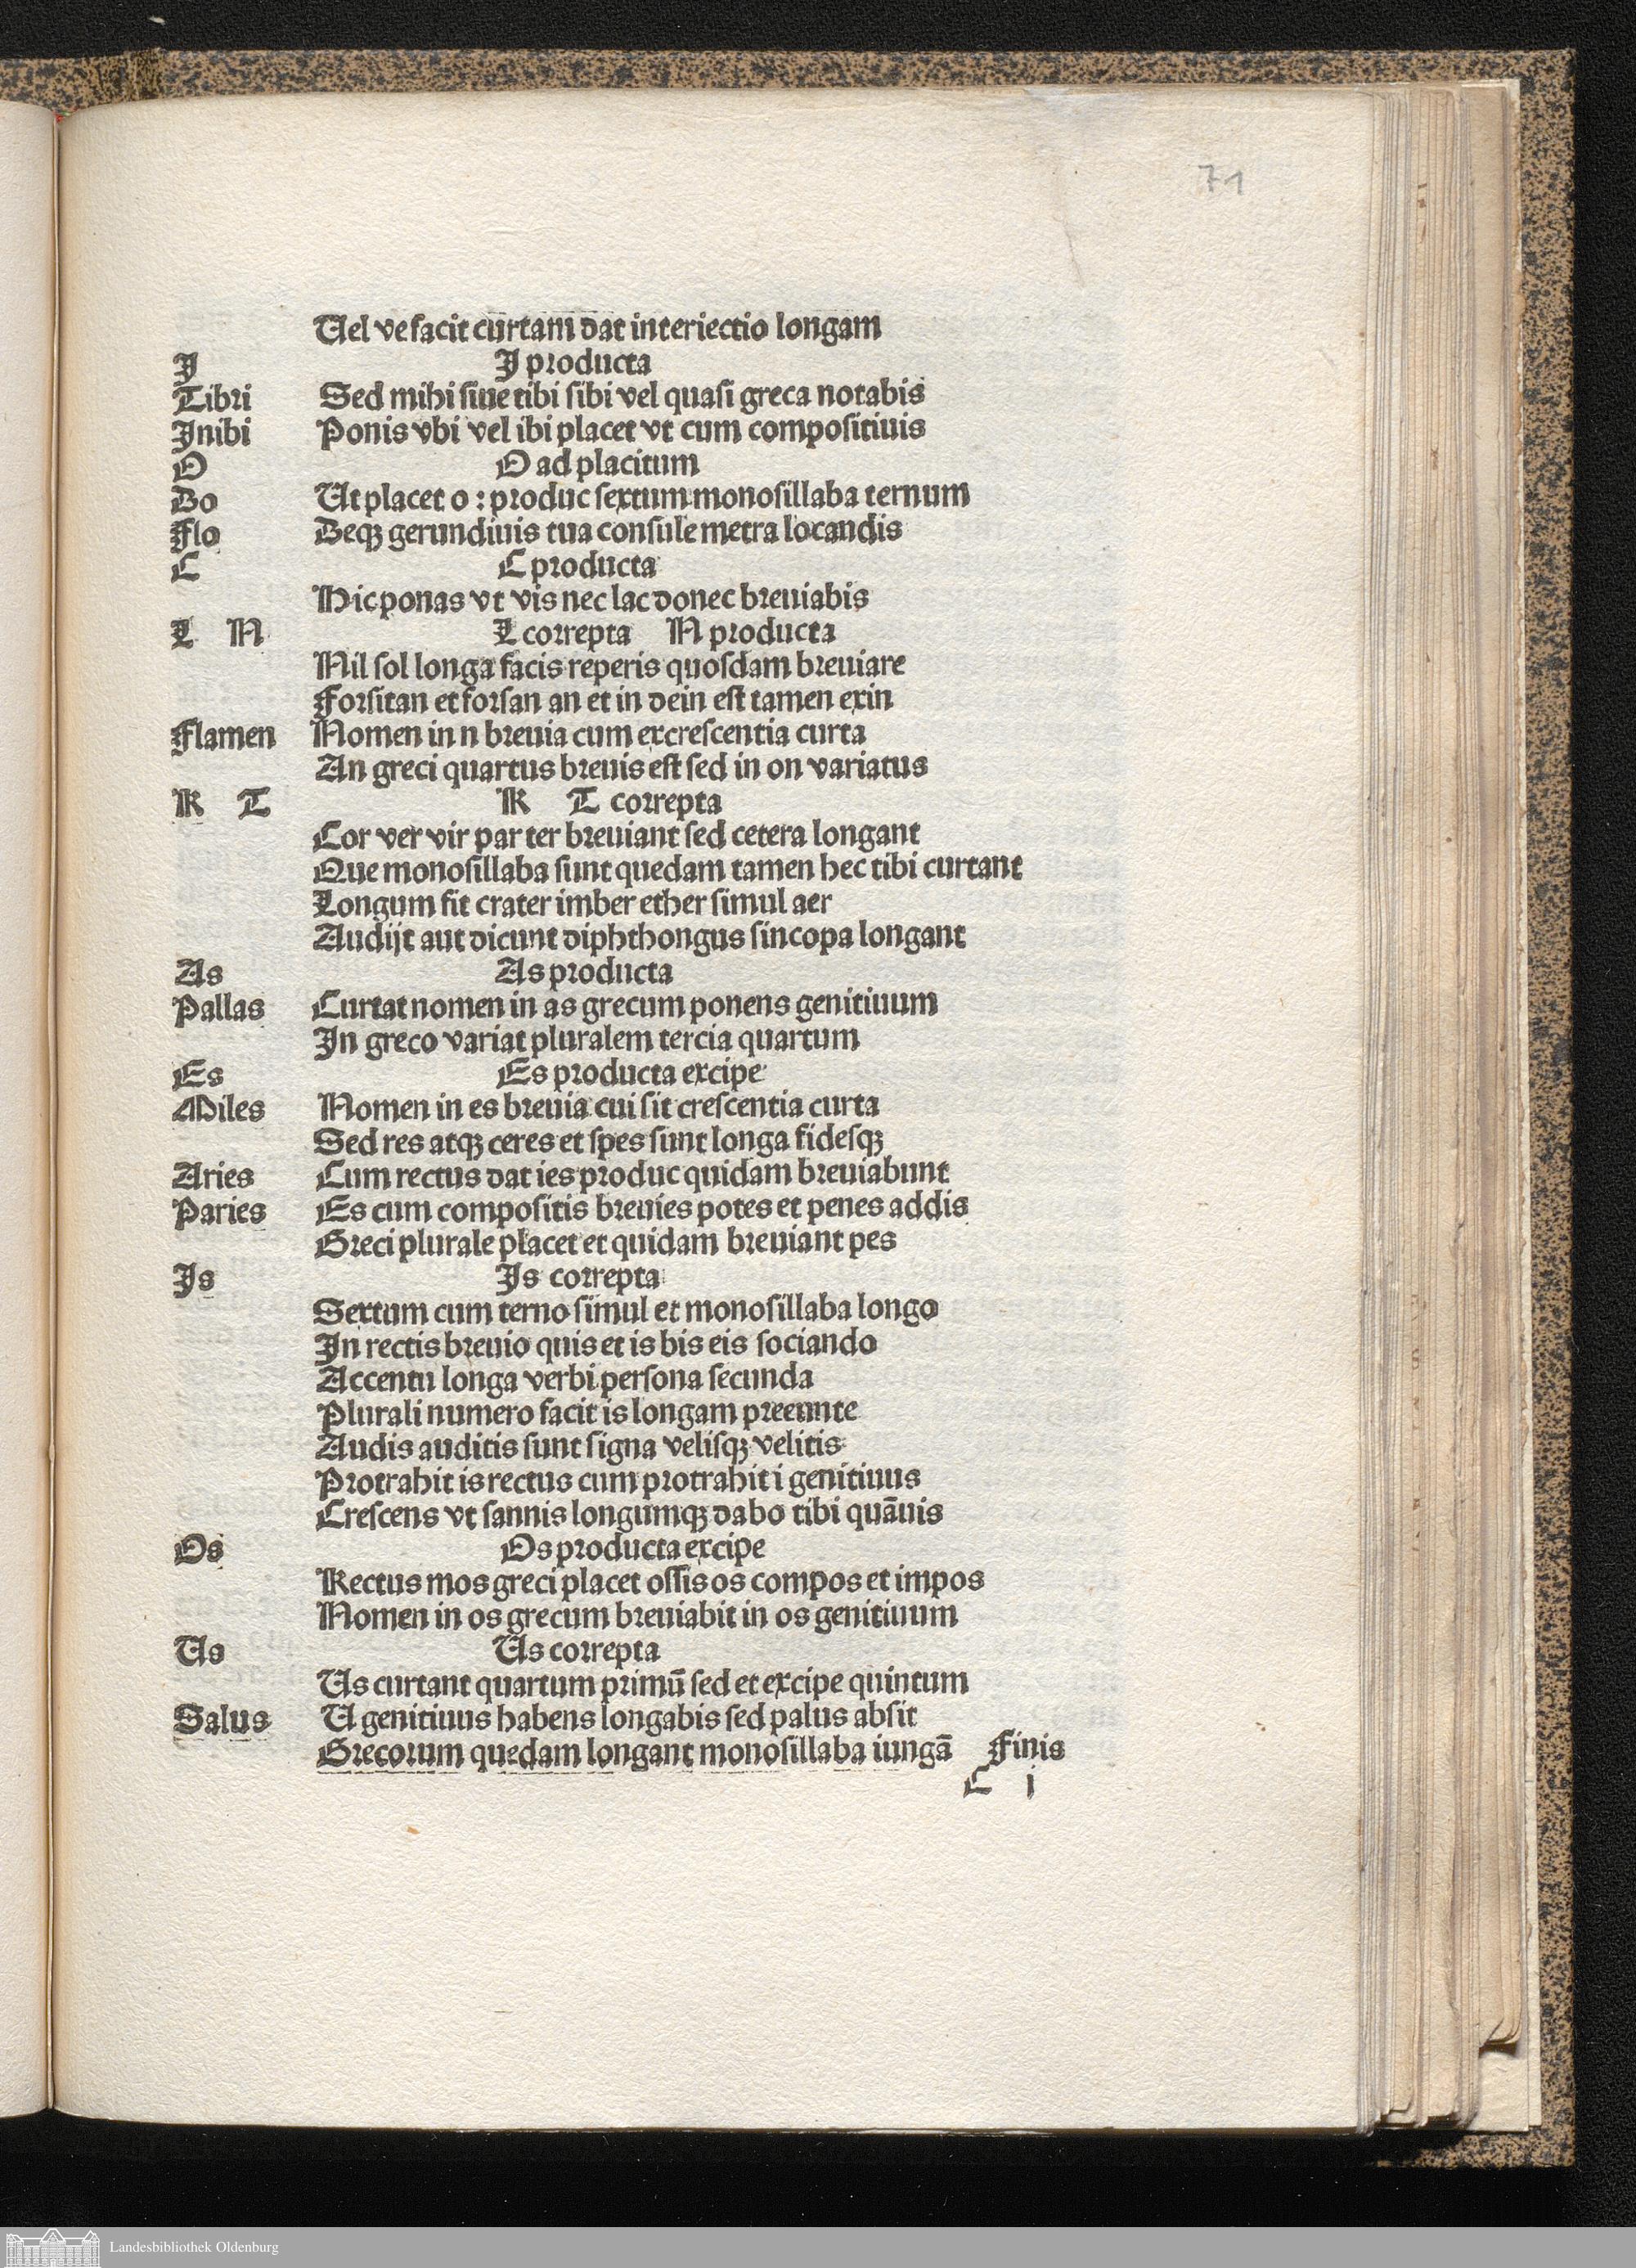 71
Uel ve facit curtam dat interiectio longam
I I producta
Tibri Sed mihi siue tibi sibi vel quasi greca notabis
Inibi Ponis vbi vel ibi placet vt cum compositiuis
O O ad placitum
Do Ut placet o : produc sextum monosillaba ternum
Flo Deqꝫ gerundiuis tua consule metra locandis
C C producta
Hic ponas vt vis nec lac donec breuiabis
L N L correpta N producta
Nil sol longa facis reperis quosdam breuiare
Forsitan et forsan an et in dein est tamen exin
Flamen Nomen in n breuia cum excrescentia curta
An greci quartus breuis est sed in on variatus
R T R T correpta
Cor ver vir par ter breuiant sed cetera longant
Que monosillaba sunt quedam tamen hec tibi curtant
Longum fit crater imber ether simul aer
Audijt aut dicunt diphthongus sincopa longant
As As producta
Pallas Curtat nomen in as grecum ponens genitiuum
In greco variat pluralem tercia quartum
Es Es producta excipe
Miles Nomen in es breuia cui sit crescentia curta
Sed res atqꝫ ceres et spes sunt longa fidesqꝫ
Aries Cum rectus dat ies produc quidam breuiabunt
Paries Es cum compositis breuies potes et penes addis
Greci plurale placet et quidam breuiant pes
Is Is correpta
Sextum cum terno simul et monosillaba longo
In rectis breuio quis et is bis eis sociando
Accentu longa verbi persona secunda
Plurali numero facit is longam preeunte
Audis auditis sunt signa velisqꝫ velitis
Protrahit is rectus cum protrahit i genitiuus
Crescens vt sannis longumqꝫ dabo tibi quāuis
Os Os producta excipe
Rectus mos greci placet ossis os compos et impos
Nomen in os grecum breuiabit in os genitiuum
Us Us correpta
Us curtant quartum primū sed et excipe quintum
Salus U genitiuus habens longabis sed palus absit
Grecorum quedam longant monosillaba iungā Finis
C i
Landesbibliothek Oldenburg